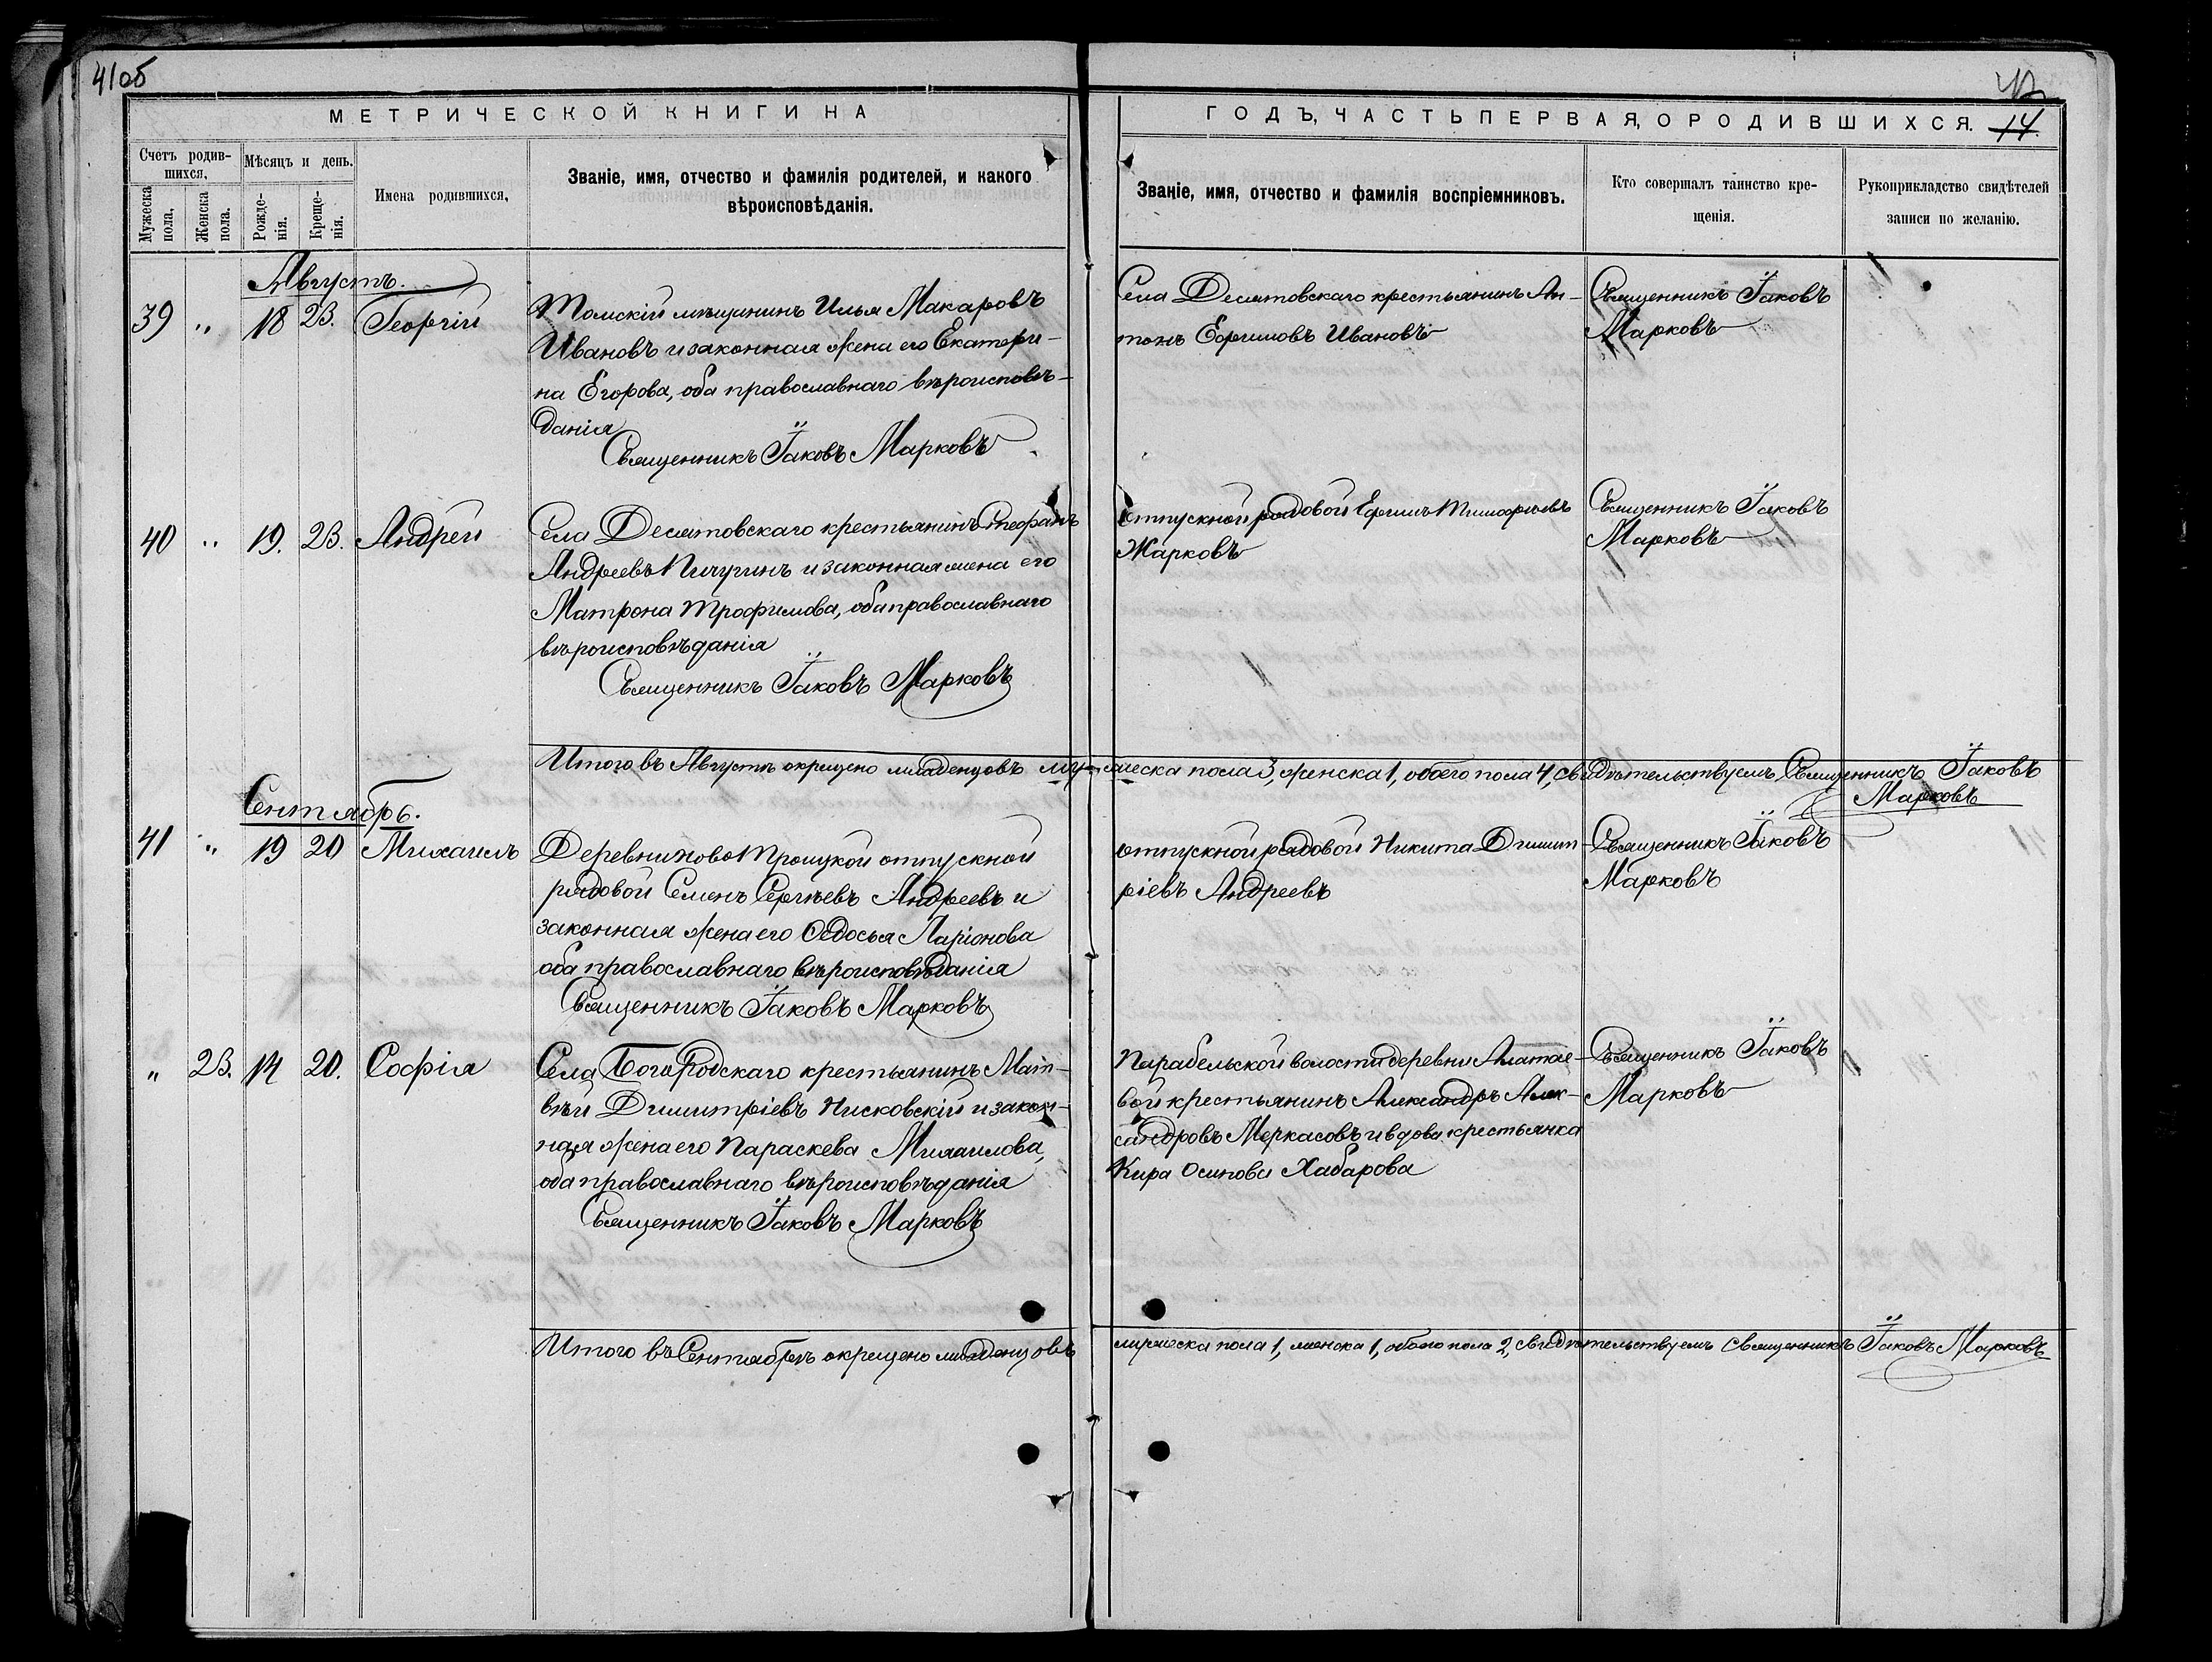 41об
42
МЕТРИЧЕСКОЙ КНИГИ НА
ГОДЪ, ЧАСТЬ ПЕРВАЯ, О РОДИВШИХСЯ. 14.
Счетъ родив-
шихся,
Мужеска пола,
Женска пола.
Мѣсяцъ и день.
Рожде-
нія.
Креще-
нія.
Имена родившихся,
Званіе, имя, отчество и фамилія родителей, и какого
вѣроисповѣданія.
Званіе, имя, отчество и фамилія воспріемниковъ.
Кто совершалъ таинство кре-
щенія.
Рукоприкладство свидѣтелей
записи по желанію.
Августъ.
39 „ 18 23. Георгій
Томскій мѣщанинъ Илья Макаровъ
Ивановъ и законная жена его Екатери-
на Егорова, оба православнаго вѣроисповѣ-
данія
Священникъ Іаковъ Марковъ
Села Десятовскаго крестьянинъ Ан-
тонъ Ефримовъ Ивановъ
Священникъ Іаковъ
Марковъ
40 „ 19. 23. Андрей
Села Десятовскаго крестьянинъ Стефанъ
Андреевъ Пичугинъ и законная жена его
Матрона Трофимова, оба православнаго
вѣроисповѣданія
Священникъ Іаковъ Марковъ
отпускной рядовой Ефимъ Тимофѣевъ
Жарковъ
Священникъ Іаковъ
Марковъ
Итого въ Августѣ окрещено младенцовъ му-жеска пола 3, женска 1, обоего пола 4, свидѣтельствуемъ, Священникъ Іаковъ
Марковъ
Сентябрь.
41 „ 19 20 Михаилъ
Деревни Ново Троицкой отпускной
рядовой Семенъ Сергѣевъ Андреевъ и
законная жена его Ѳедосья Ларіонова
оба православнаго вѣроисповѣданія
Священникъ Іаковъ Марковъ
отпускной рядовой Никита Димит-
ріевъ Андреевъ
Священникъ Іаковъ
Марковъ
„ 23. 14 20. Софія
Села Богородскаго крестьянинъ Мат-
вѣй Димитріевъ Нисковскій и закон-
ная жена его Параскева Михаилова,
оба православнаго вѣроисповѣданія
Священникъ Іаковъ Марковъ
Парабельской волости деревни Алатае-
вой крестьянинъ Александръ Алек-
сандровъ Меркасовъ и вдова крестьянка
Кира Осипова Хабарова
Священникъ Іаковъ
Марковъ
Итого въ Сентябрѣ окрещено младенцовъ мужеска пола 1, женска 1, обоего пола 2, свидѣтельствуемъ Священникъ Іаковъ Марковъ